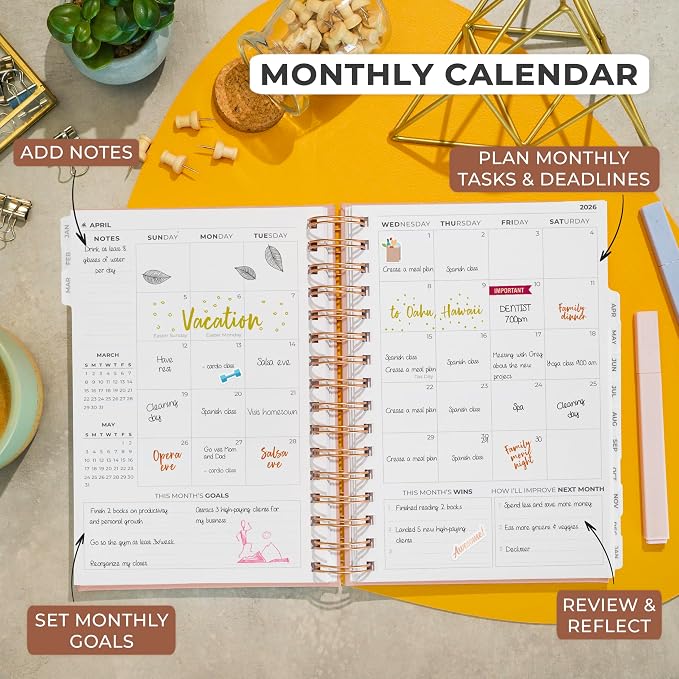 MONTHLY CALENDAR
ADD NOTES
PLAN MONTHLY
TASKS & DEADLINES
APRIL
2026
JAN
FEB
MAR
NOTES
Drink at least 8
glasses of water
per day
SUNDAY MONDAY TUESDAY
WEDNESDAY THURSDAY FRIDAY SATURDAY
1 2 3 4
Create a meal plan
Spanish class
5 6 7
8 9 10 11
Vacation
to Oahu, Hawaii
Easter Sunday
Easter Monday
IMPORTANT
DENTIST
7:00pm
Family
dinner
MARCH
S M T W T F S
1 2 3 4 5 6 7
8 9 10 11 12 13 14
15 16 17 18 19 20 21
22 23 24 25 26 27 28
29 30 31
12 13 14
Have
rest
- cardio class
Salsa eve
15 16 17 18
Spanish class
Create a meal plan
Tax Day
Spanish class
Meeting with Greg
about the new
project
Yoga class 9:00 am
19 20 21
Cleaning
day
Spanish class
Visit hometown
22 23 24 25
Create a meal plan
Spanish class
Spa
Cleaning
day
MAY
S M T W T F S
1 2
3 4 5 6 7 8 9
10 11 12 13 14 15 16
17 18 19 20 21 22 23
24 25 26 27 28 29 30
31
26 27 28
Opera
eve
Go see Mom and
Dad
- cardio class
Salsa
eve
29 30
Create a meal plan
Spanish class
Family
movie
night
APR
MAY
JUN
JUL
AUG
SEP
OCT
NOV
JAN
THIS MONTH'S GOALS
Finish 2 books on productivity
and personal growth
Go to the gym at least 3x/week
Reorganize my closet
Attract 3 high-paying clients for
my business
THIS MONTH'S WINS
1 Finished reading 2 books
2 Landed 5 new high-paying
clients
3
Awesome!
HOW I'LL IMPROVE NEXT MONTH
1 Spend less and save more money
2 Eat more greens & veggies
3 Declutter
SET MONTHLY
GOALS
REVIEW &
REFLECT